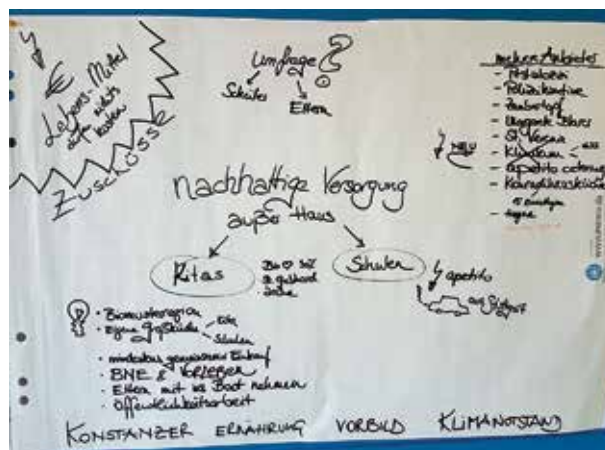 €
Lebens-Mittel
darf nichts
kosten
ZUSCHÜSSE
Umfrage?
Schüler
Eltern
mehrere Anbieter
- Pestalozzi
- Polizeikantine
- Zauberlopf
- St. Verena
- Klinikum
- apetito catering
- eigene
NEU
nachhaltige Versorgung
außer Haus
Kitas
Schulen
apetito
• Biomusterregion
• Eigene Großküche
Kita
Schulen
gemeinsamer Einkauf
• BNE & VORLEBEN
• Eltern mit ins Boot nehmen
• Öffentlichkeitsarbeit
KONSTANZER ERNÄHRUNG VORBILD KLIMANOTSTAND